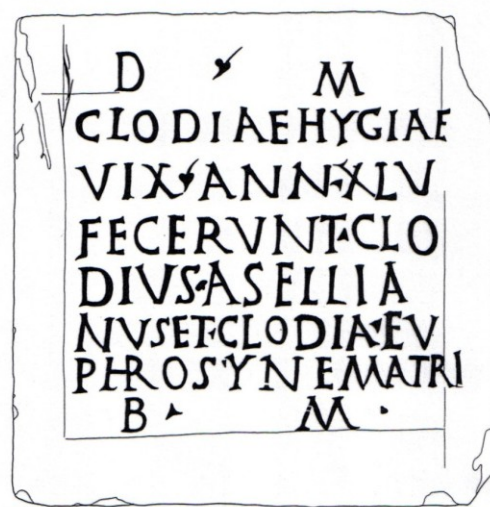 D M
CLODIAE HYGIAE
VIX ANN XLV
FECERVNT CLO
DIVS ASELLIA
NVS ET CLODIA EV
PHROSYNE MATRI
B M